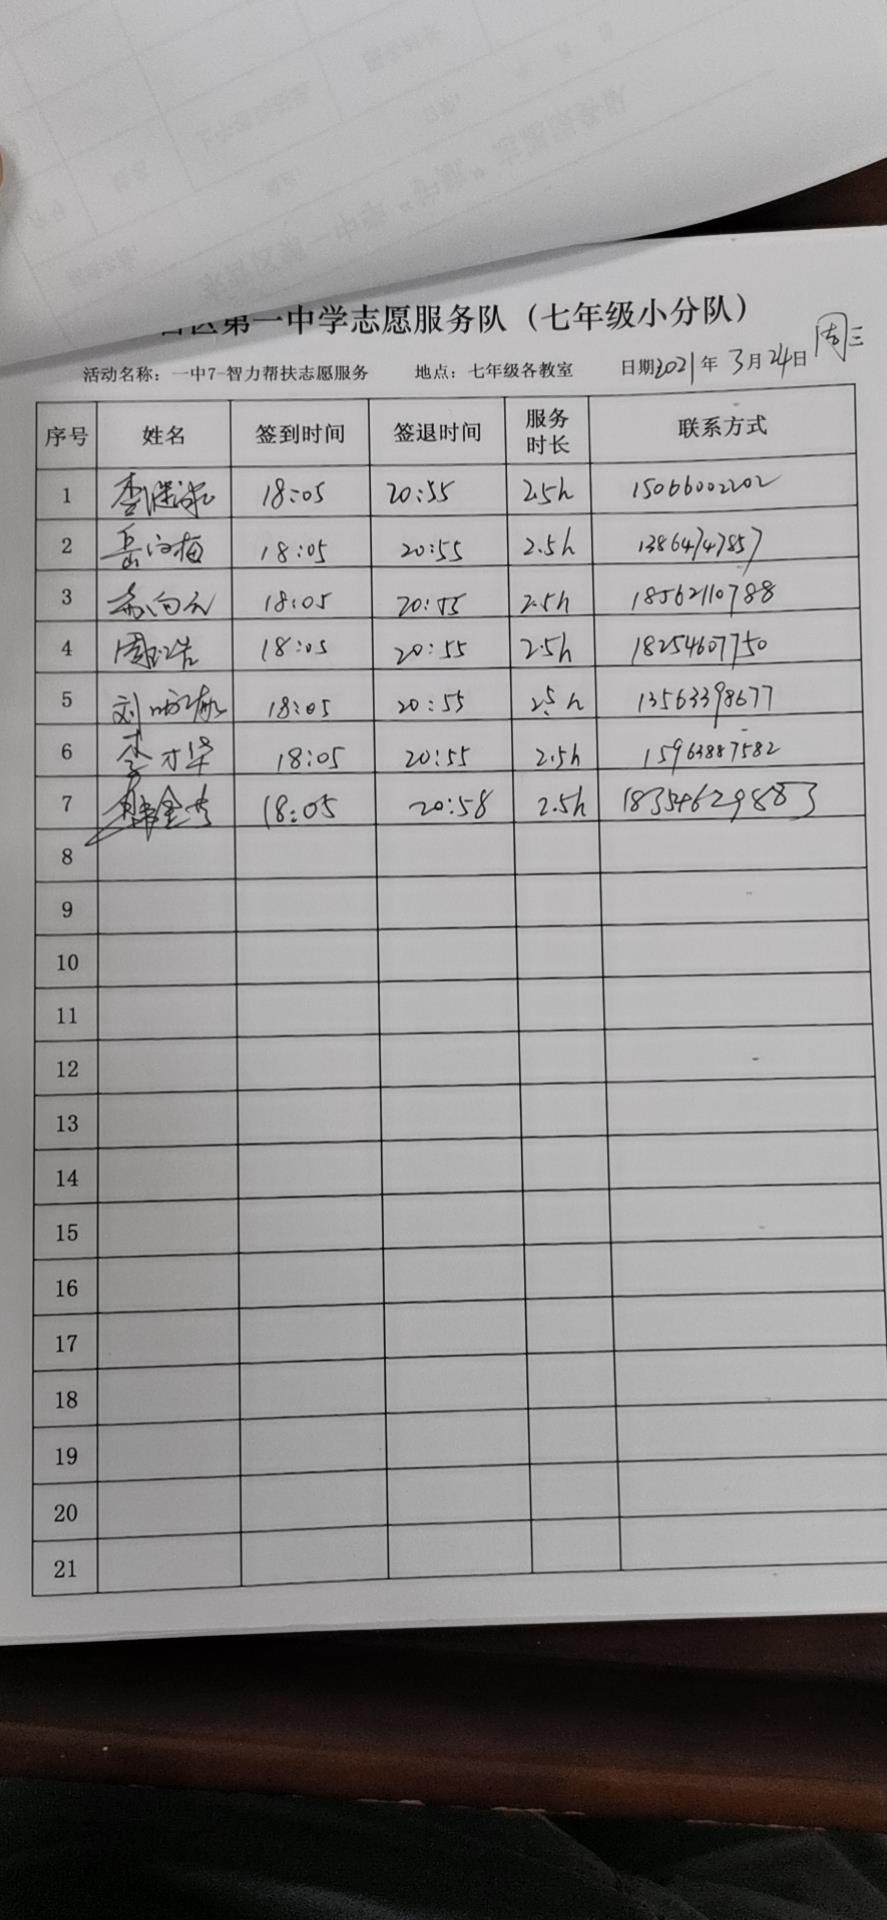 区第一中学志愿服务队（七年级小分队）
活动名称：一中7-智力帮扶志愿服务 地点：七年级各教室 日期2021年3月24日 周三
序号 姓名 签到时间 签退时间 服务时长 联系方式
1 18:05 20:55 2.5h 15066002202
2 岳向梅 18:05 20:55 2.5h 13864747857
3 18:05 20:55 2.5h 18562110788
4 18:05 20:55 2.5h 18254607750
5 刘 18:05 20:55 2.5h 13563398677
6 李才华 18:05 20:55 2.5h 15963887582
7 18:05 20:58 2.5h 18354629883
8
9
10
11
12
13
14
15
16
17
18
19
20
21